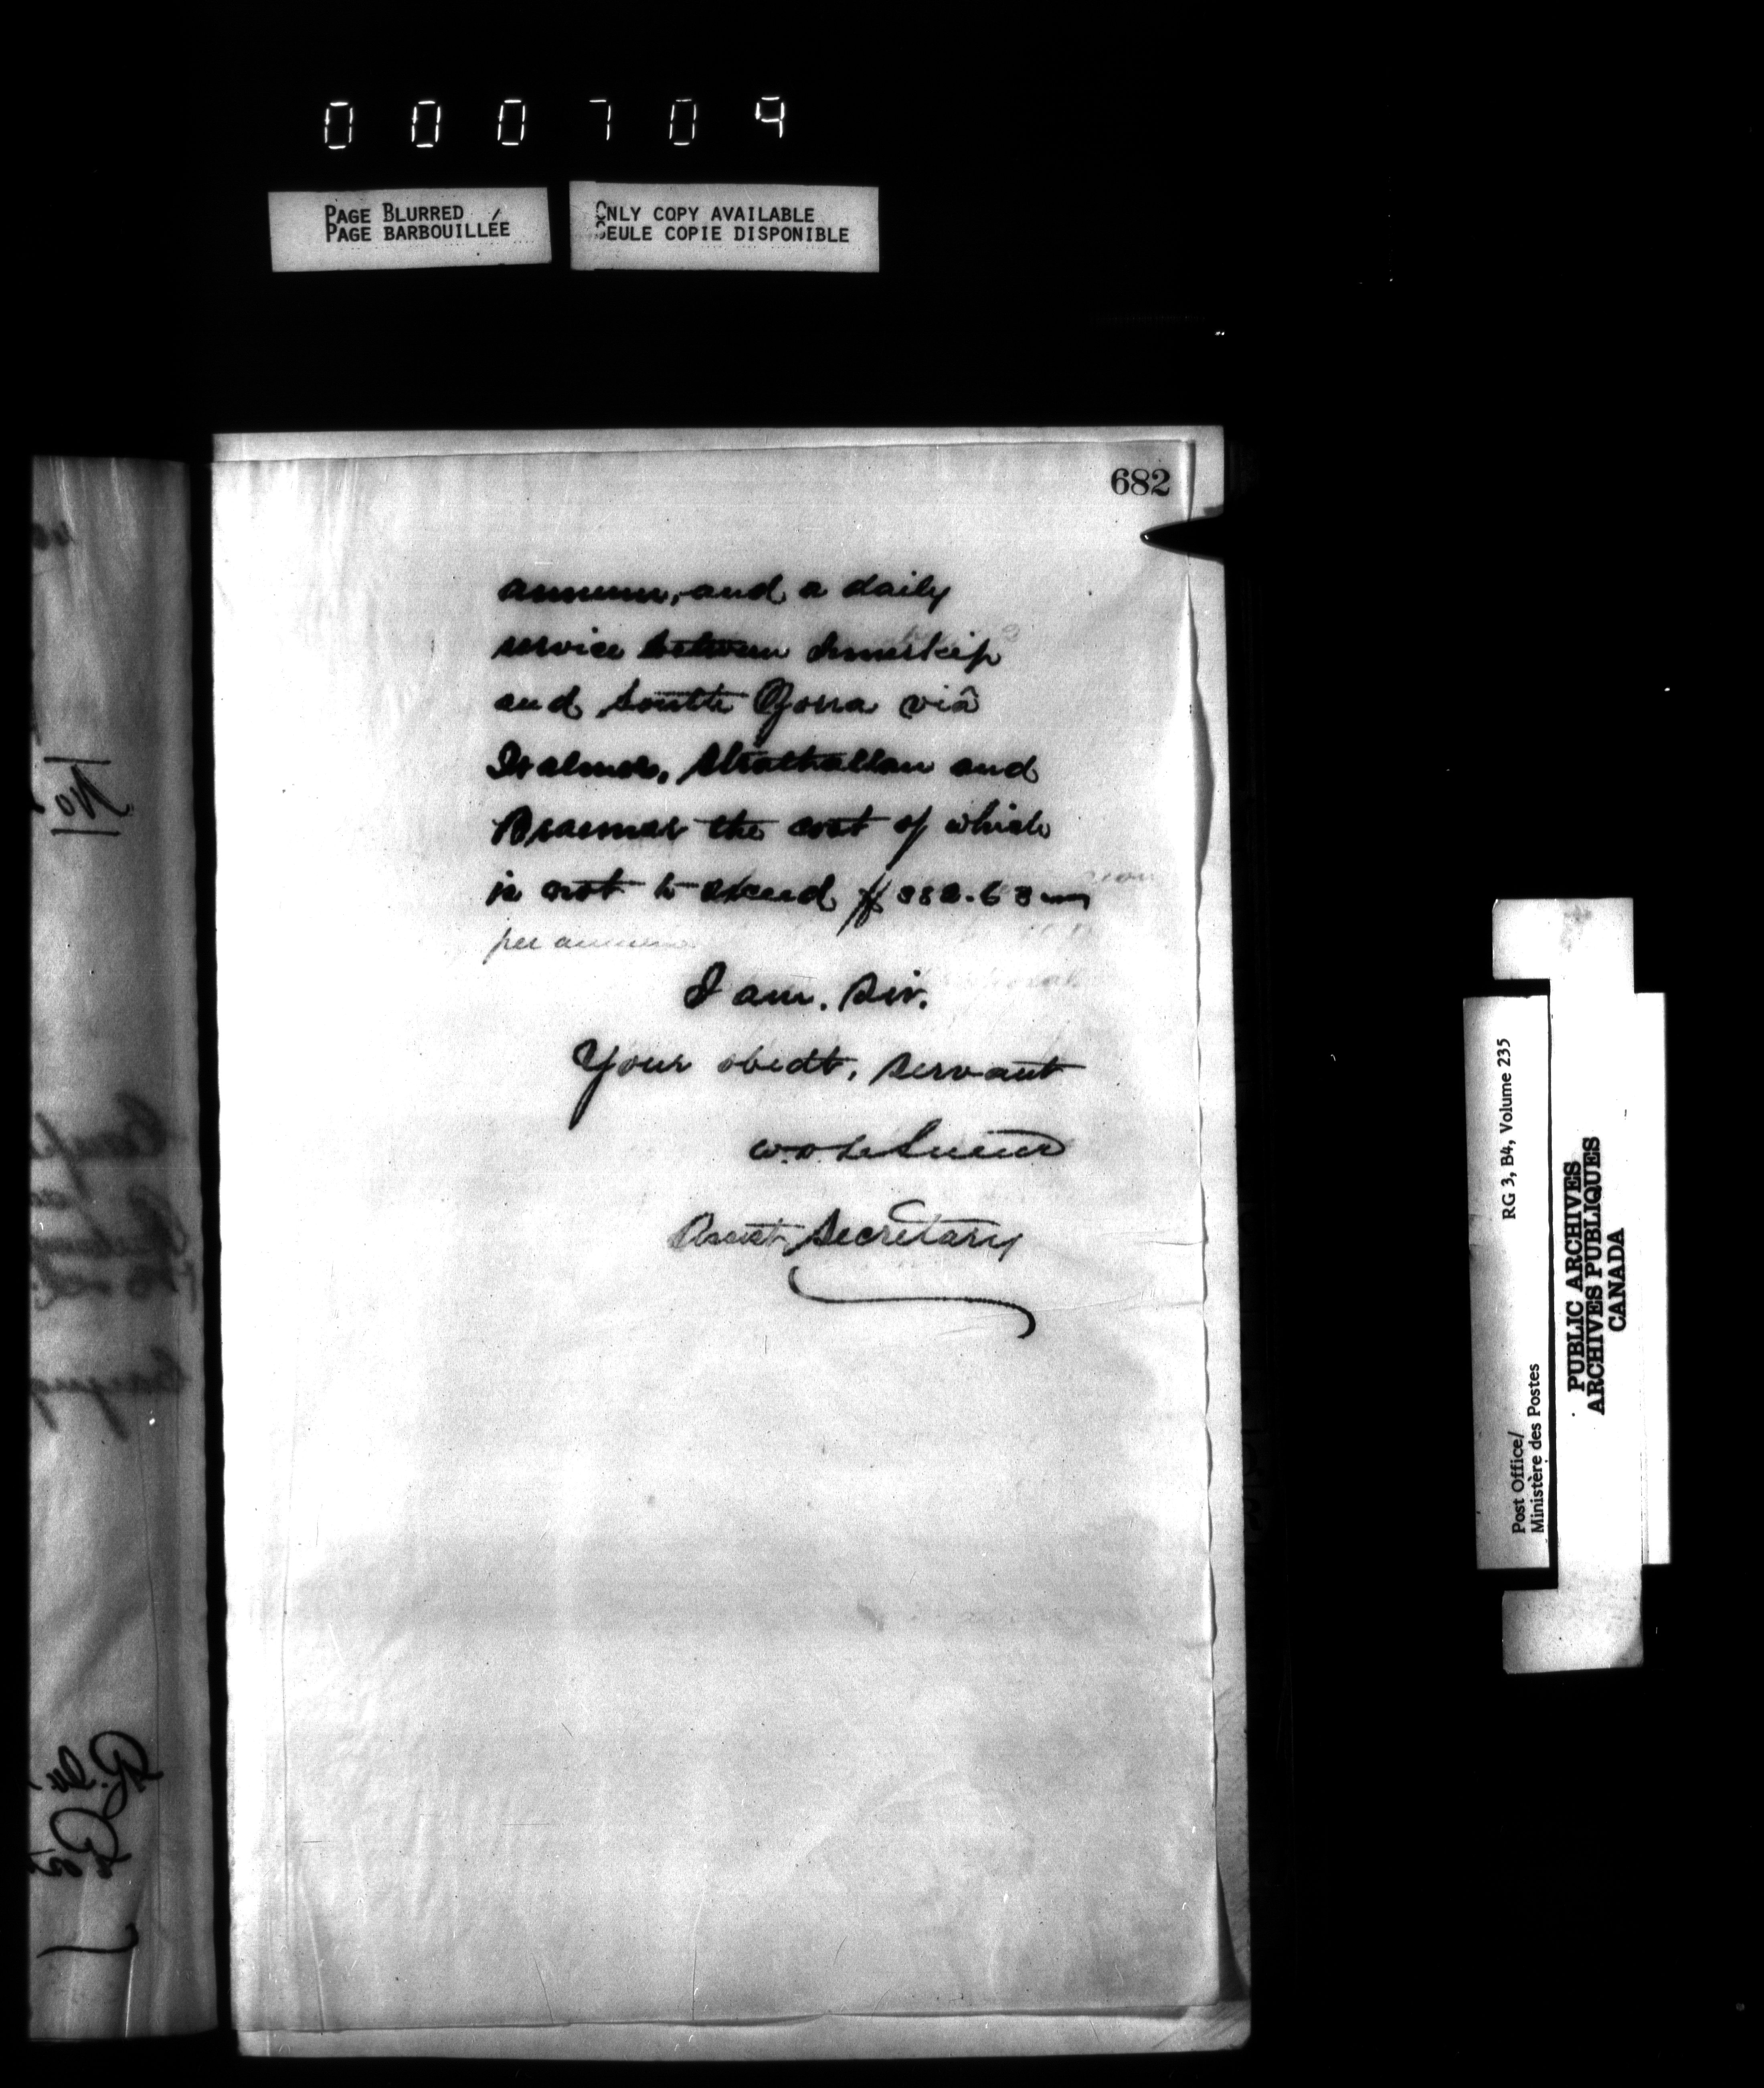 000704
PAGE BLURRED
PAGE BARBOUILLÉE
ONLY COPY AVAILABLE
SEULE COPIE DISPONIBLE
682
annum, and a daily
service between Innerkip
and South Zorra viâ
Strathallan and
Braemar the cost of which
is not to exceed $ 382.63
per annum
I am. Sir.
Your obedt. servant
W. D. LeSueur
Asst. Secretary
Post Office/
Ministère des Postes
RG 3, B4, Volume 235
PUBLIC ARCHIVES
ARCHIVES PUBLIQUES
CANADA